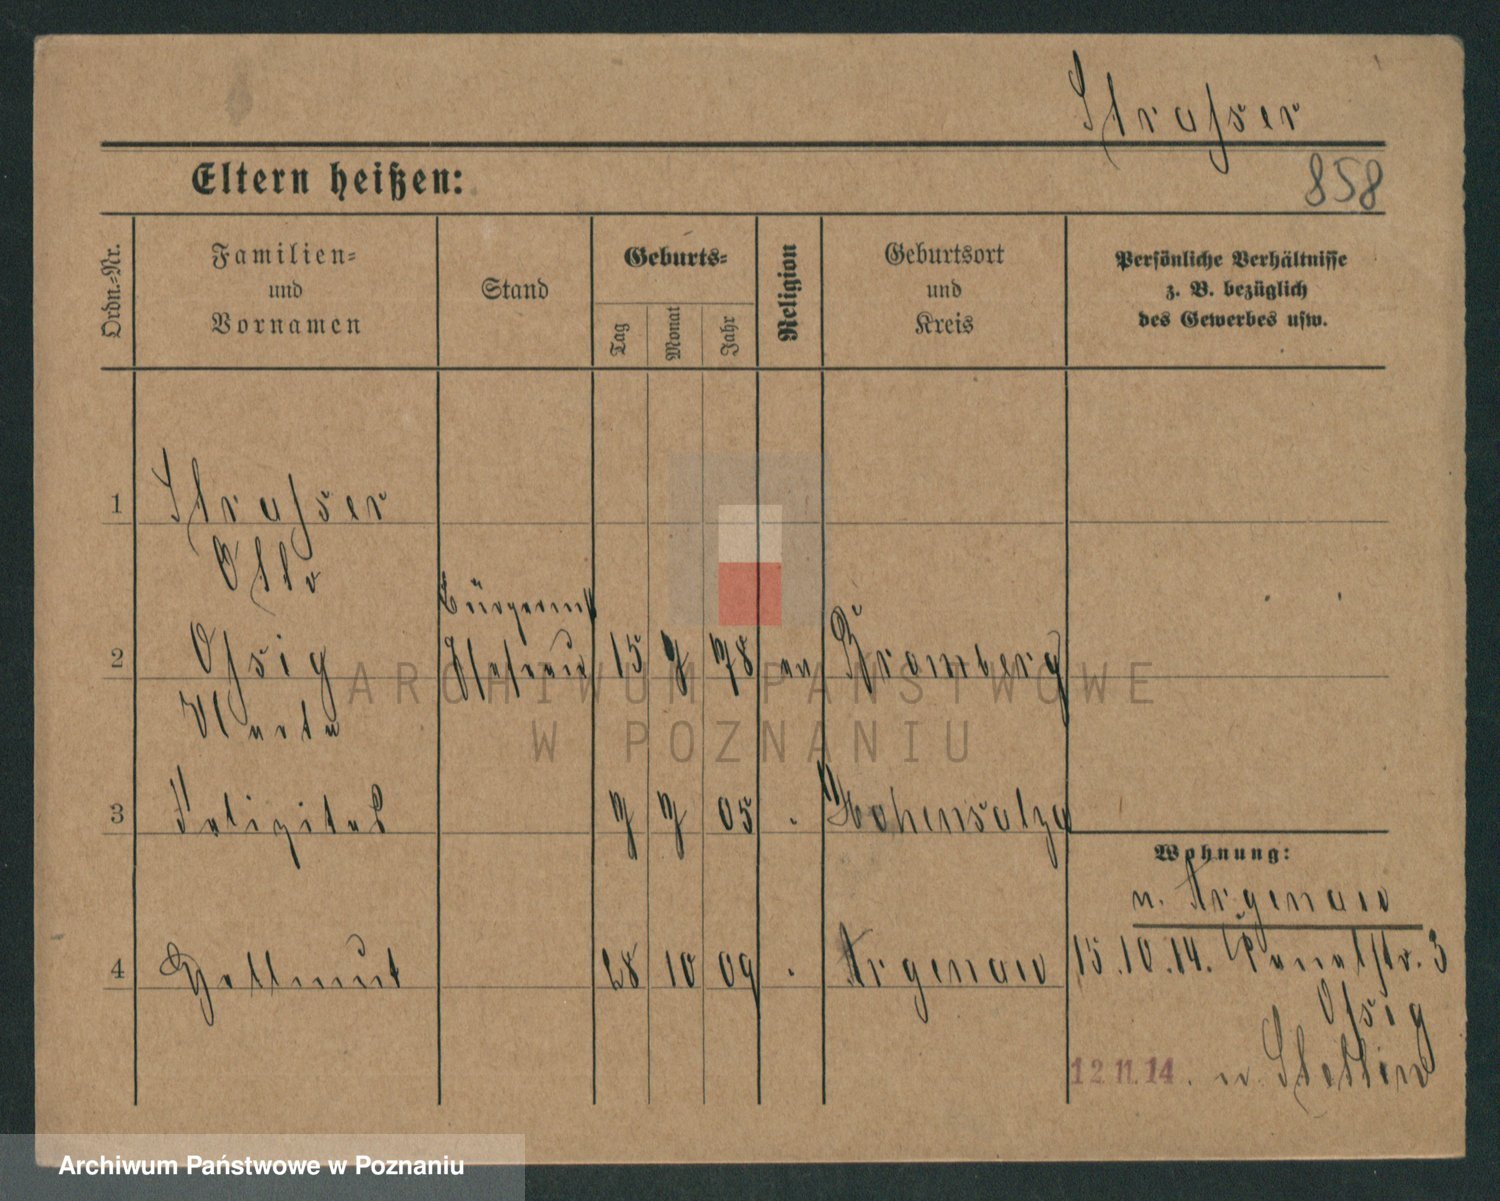 Strasser
Eltern heißen:
858
Ordn.-Nr.
Familien-
und
Vornamen
Stand
Geburts-
Tag
Monat
Jahr
Religion
Geburtsort
und
Kreis
Persönliche Verhältnisse
z. B. bezüglich
des Gewerbes usw.
1 Strasser
Otto
2 Ossig 15 7 78 ev Bromberg
3 7 7 05 Hohensalza
Wohnung:
n. Argenau
4 Hellmut 28 10 09 Argenau
15.10.14. 3
Ossig
12.11.14. n Stettin
ARCHIWUM PAŃSTWOWE
W POZNANIU
Archiwum Państwowe w Poznaniu